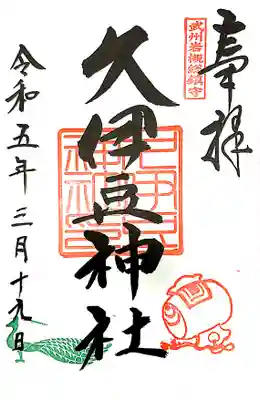 奉拝
武州岩槻総鎮守
久伊豆神社
令和五年三月十九日